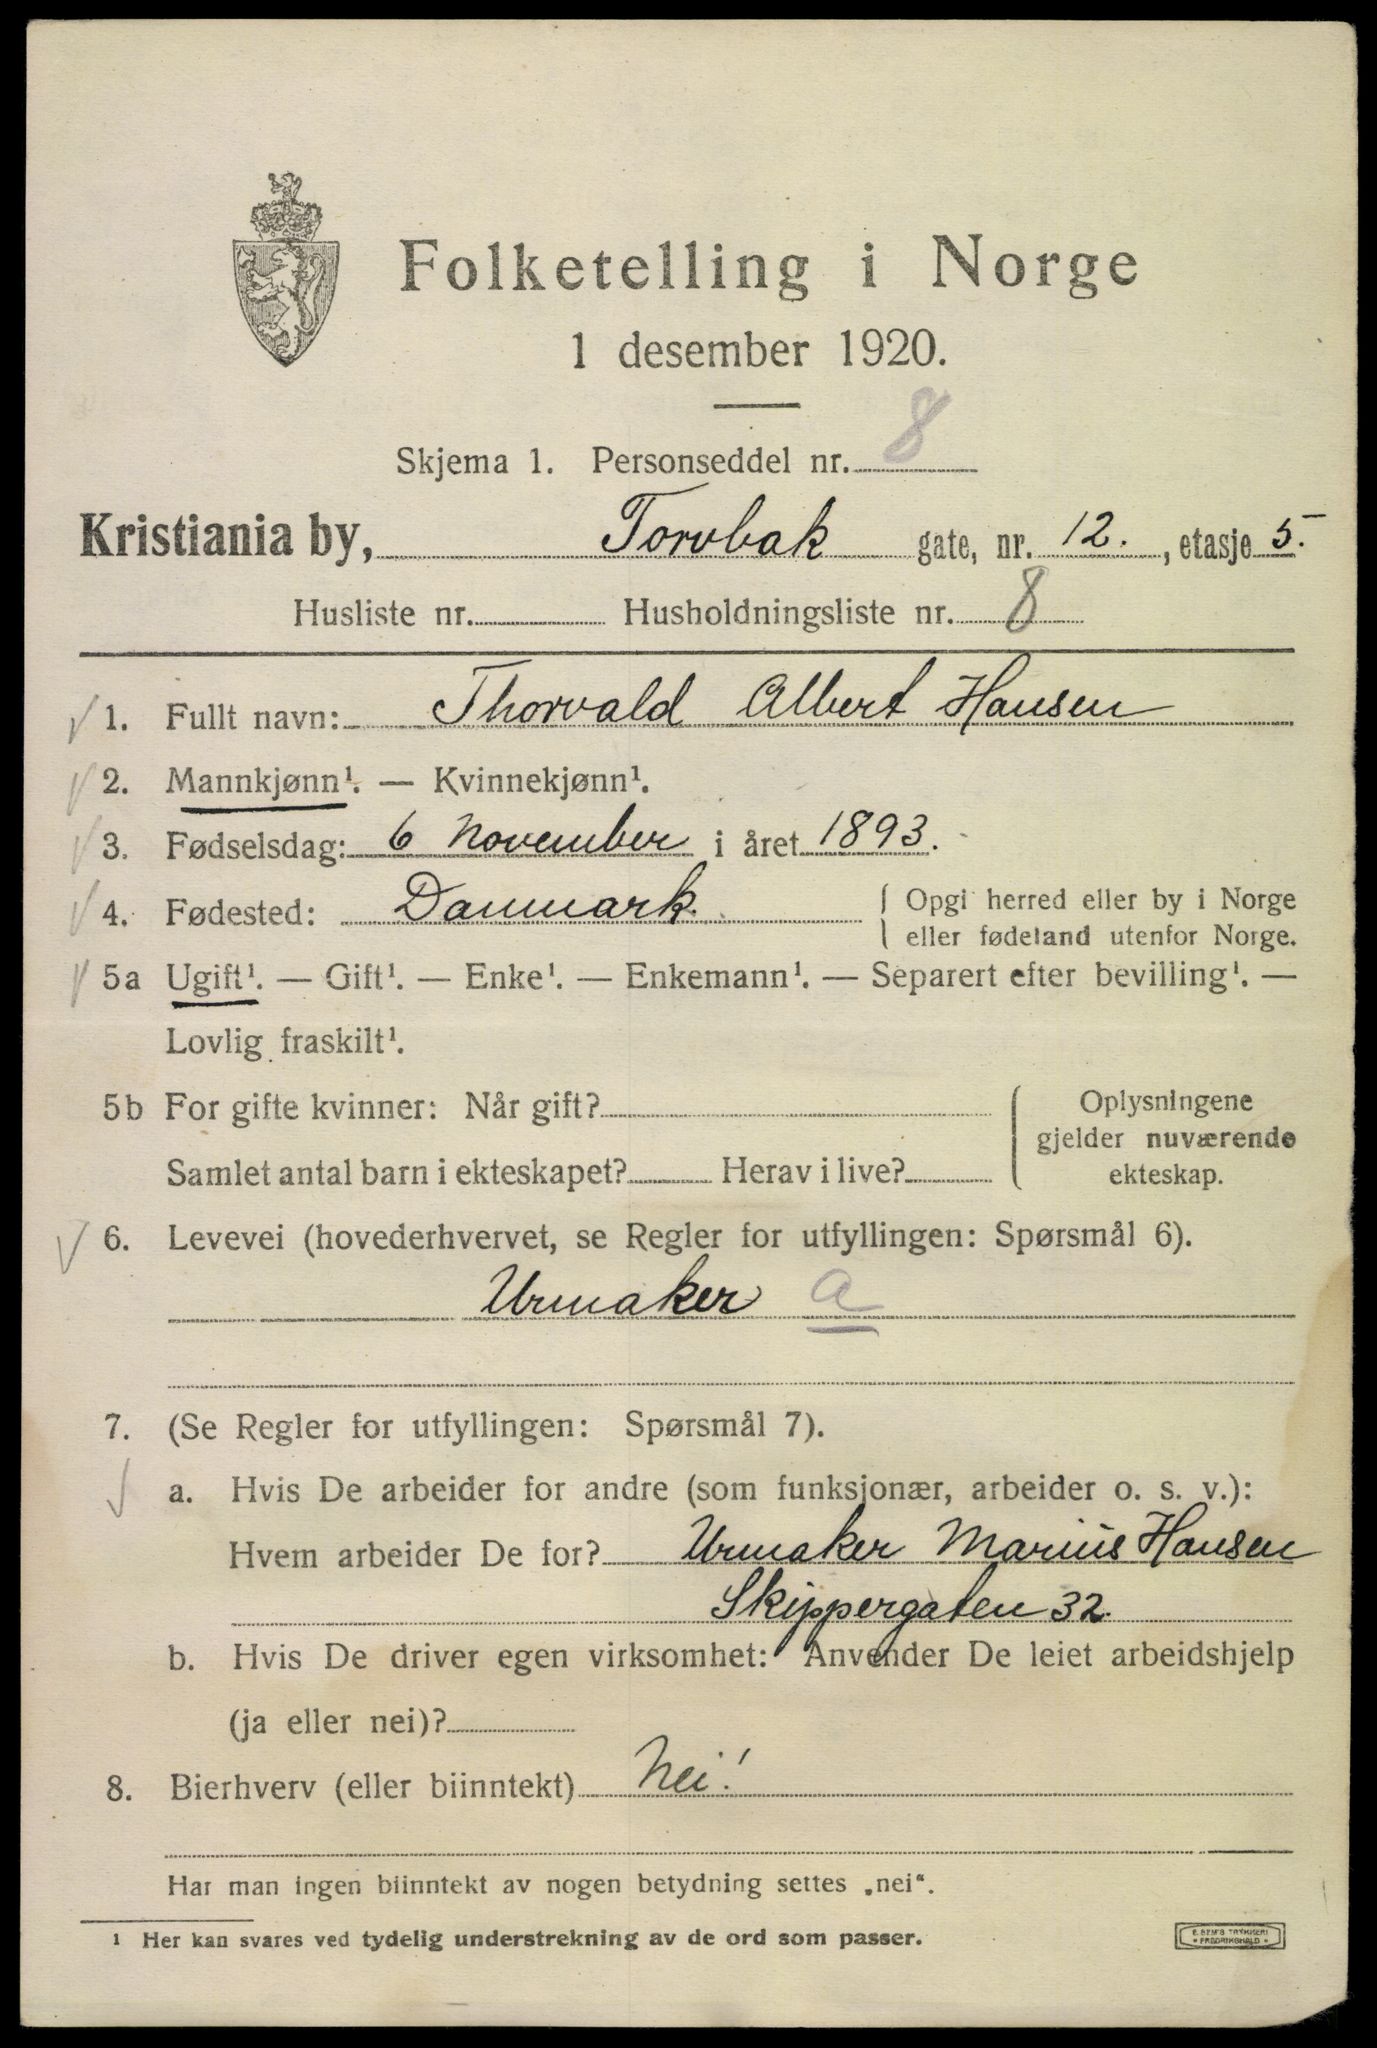 Folketelling i Norge
1 desember 1920.
Skjema 1. Personseddel nr. 8
Kristiania by, Torvbak gate, nr. 12. , etasje 5.
Husliste nr. Husholdningsliste nr. 8
1. Fullt navn: Thorvald Albert Hansen
2. Mannkjønn¹. — Kvinnekjønn¹.
3. Fødselsdag: 6 November i året 1893.
4. Fødested: Danmark. { Opgi herred eller by i Norge
eller fødeland utenfor Norge.
5a Ugift¹. — Gift¹. — Enke¹. — Enkemann¹. — Separert efter bevilling¹. —
Lovlig fraskilt¹.
5b For gifte kvinner: Når gift? { Oplysningene
gjelder nuværende
Samlet antal barn i ekteskapet? Herav i live? ekteskap.
6. Levevei (hovederhvervet, se Regler for utfyllingen: Spørsmål 6).
Urmaker a
7. (Se Regler for utfyllingen: Spørsmål 7).
a. Hvis De arbeider for andre (som funksjonær, arbeider o. s. v.):
Hvem arbeider De for? Urmaker Marius Hansen
Skippergaten 32.
b. Hvis De driver egen virksomhet: Anvender De leiet arbeidshjelp
(ja eller nei)?
8. Bierhverv (eller biinntekt) Nei!
Har man ingen biinntekt av nogen betydning settes „nei“.
¹ Her kan svares ved tydelig understrekning av de ord som passer.